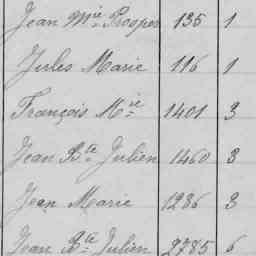 Jean Mie Prosper 135 1
Jules Marie 116 1
François Mie 1401 3
Jean Bte Julien 1460 3
Jean Marie 1286 3
Jean Bte Julien 2785 6